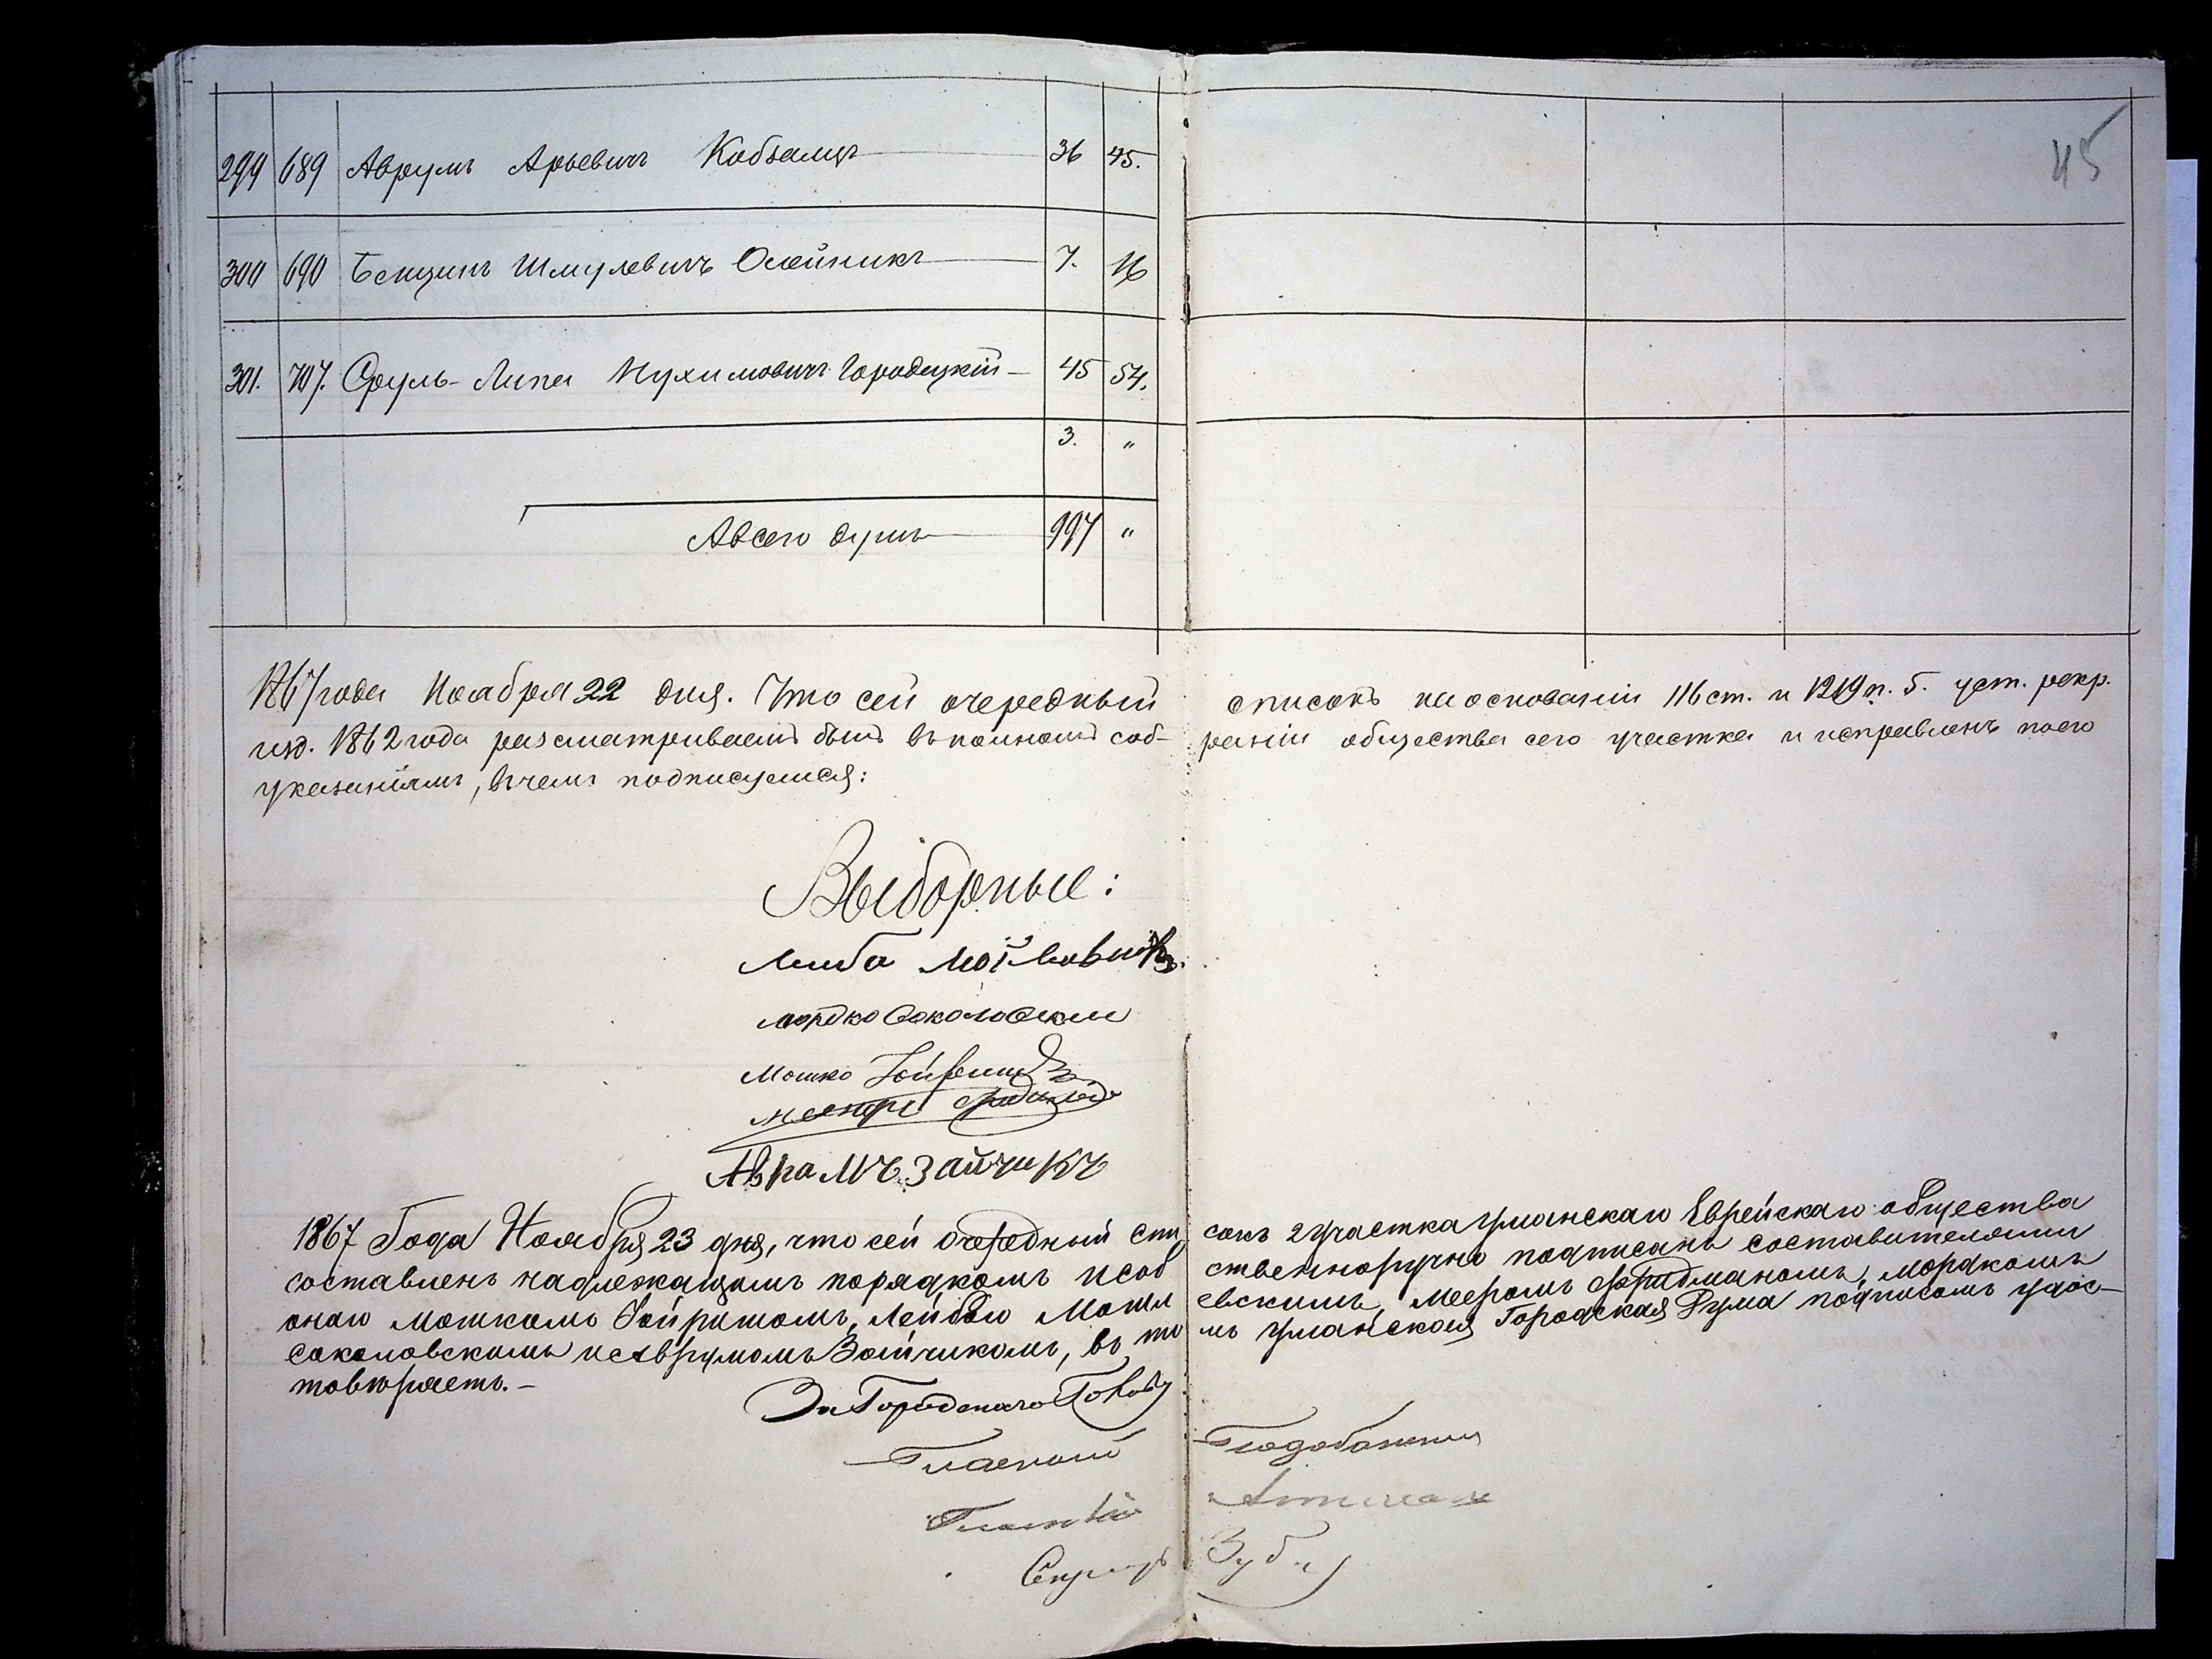 45
299 689 Аврумъ Арьевичъ Кобзанцъ 36 45.
300 690 Бенционъ Шмулевичъ Олейникъ 7. 16
301. 707. Сруль-Липа Нухимовичъ Городецкій 45 54.
3. "
А всего душъ 997 "
1867 года Ноября 22 дня. Что сей очередный списокъ на основаніи 116 ст. и 1219 п. 5. уст. рекр.
изд. 1862 года разсматриваемъ былъ въ полномъ собраніи общества сего участка и исправленъ по его
указаніямъ, въ чемъ подписуемся:
Выборные:
Мордко Соколовскии
Мошко
Аврамъ Зайчикъ
1867 Года Ноября 23 дня, что сей очередный списокъ 2 участка Уманскаго Еврейскаго общества
составленъ надлежащимъ порядкомъ и собственноручно подписанъ составителями
онаго Мошкомъ Лейбою Мееромъ Фридманомъ, Мордкомъ
Соколовскимъ и Аврумомъ Зайчикомъ, въ томъ Уманская Городская Дума подписомъ удос-
товѣряетъ.-
За Городскаго Голову
Гласный
Гласный
Секретарь